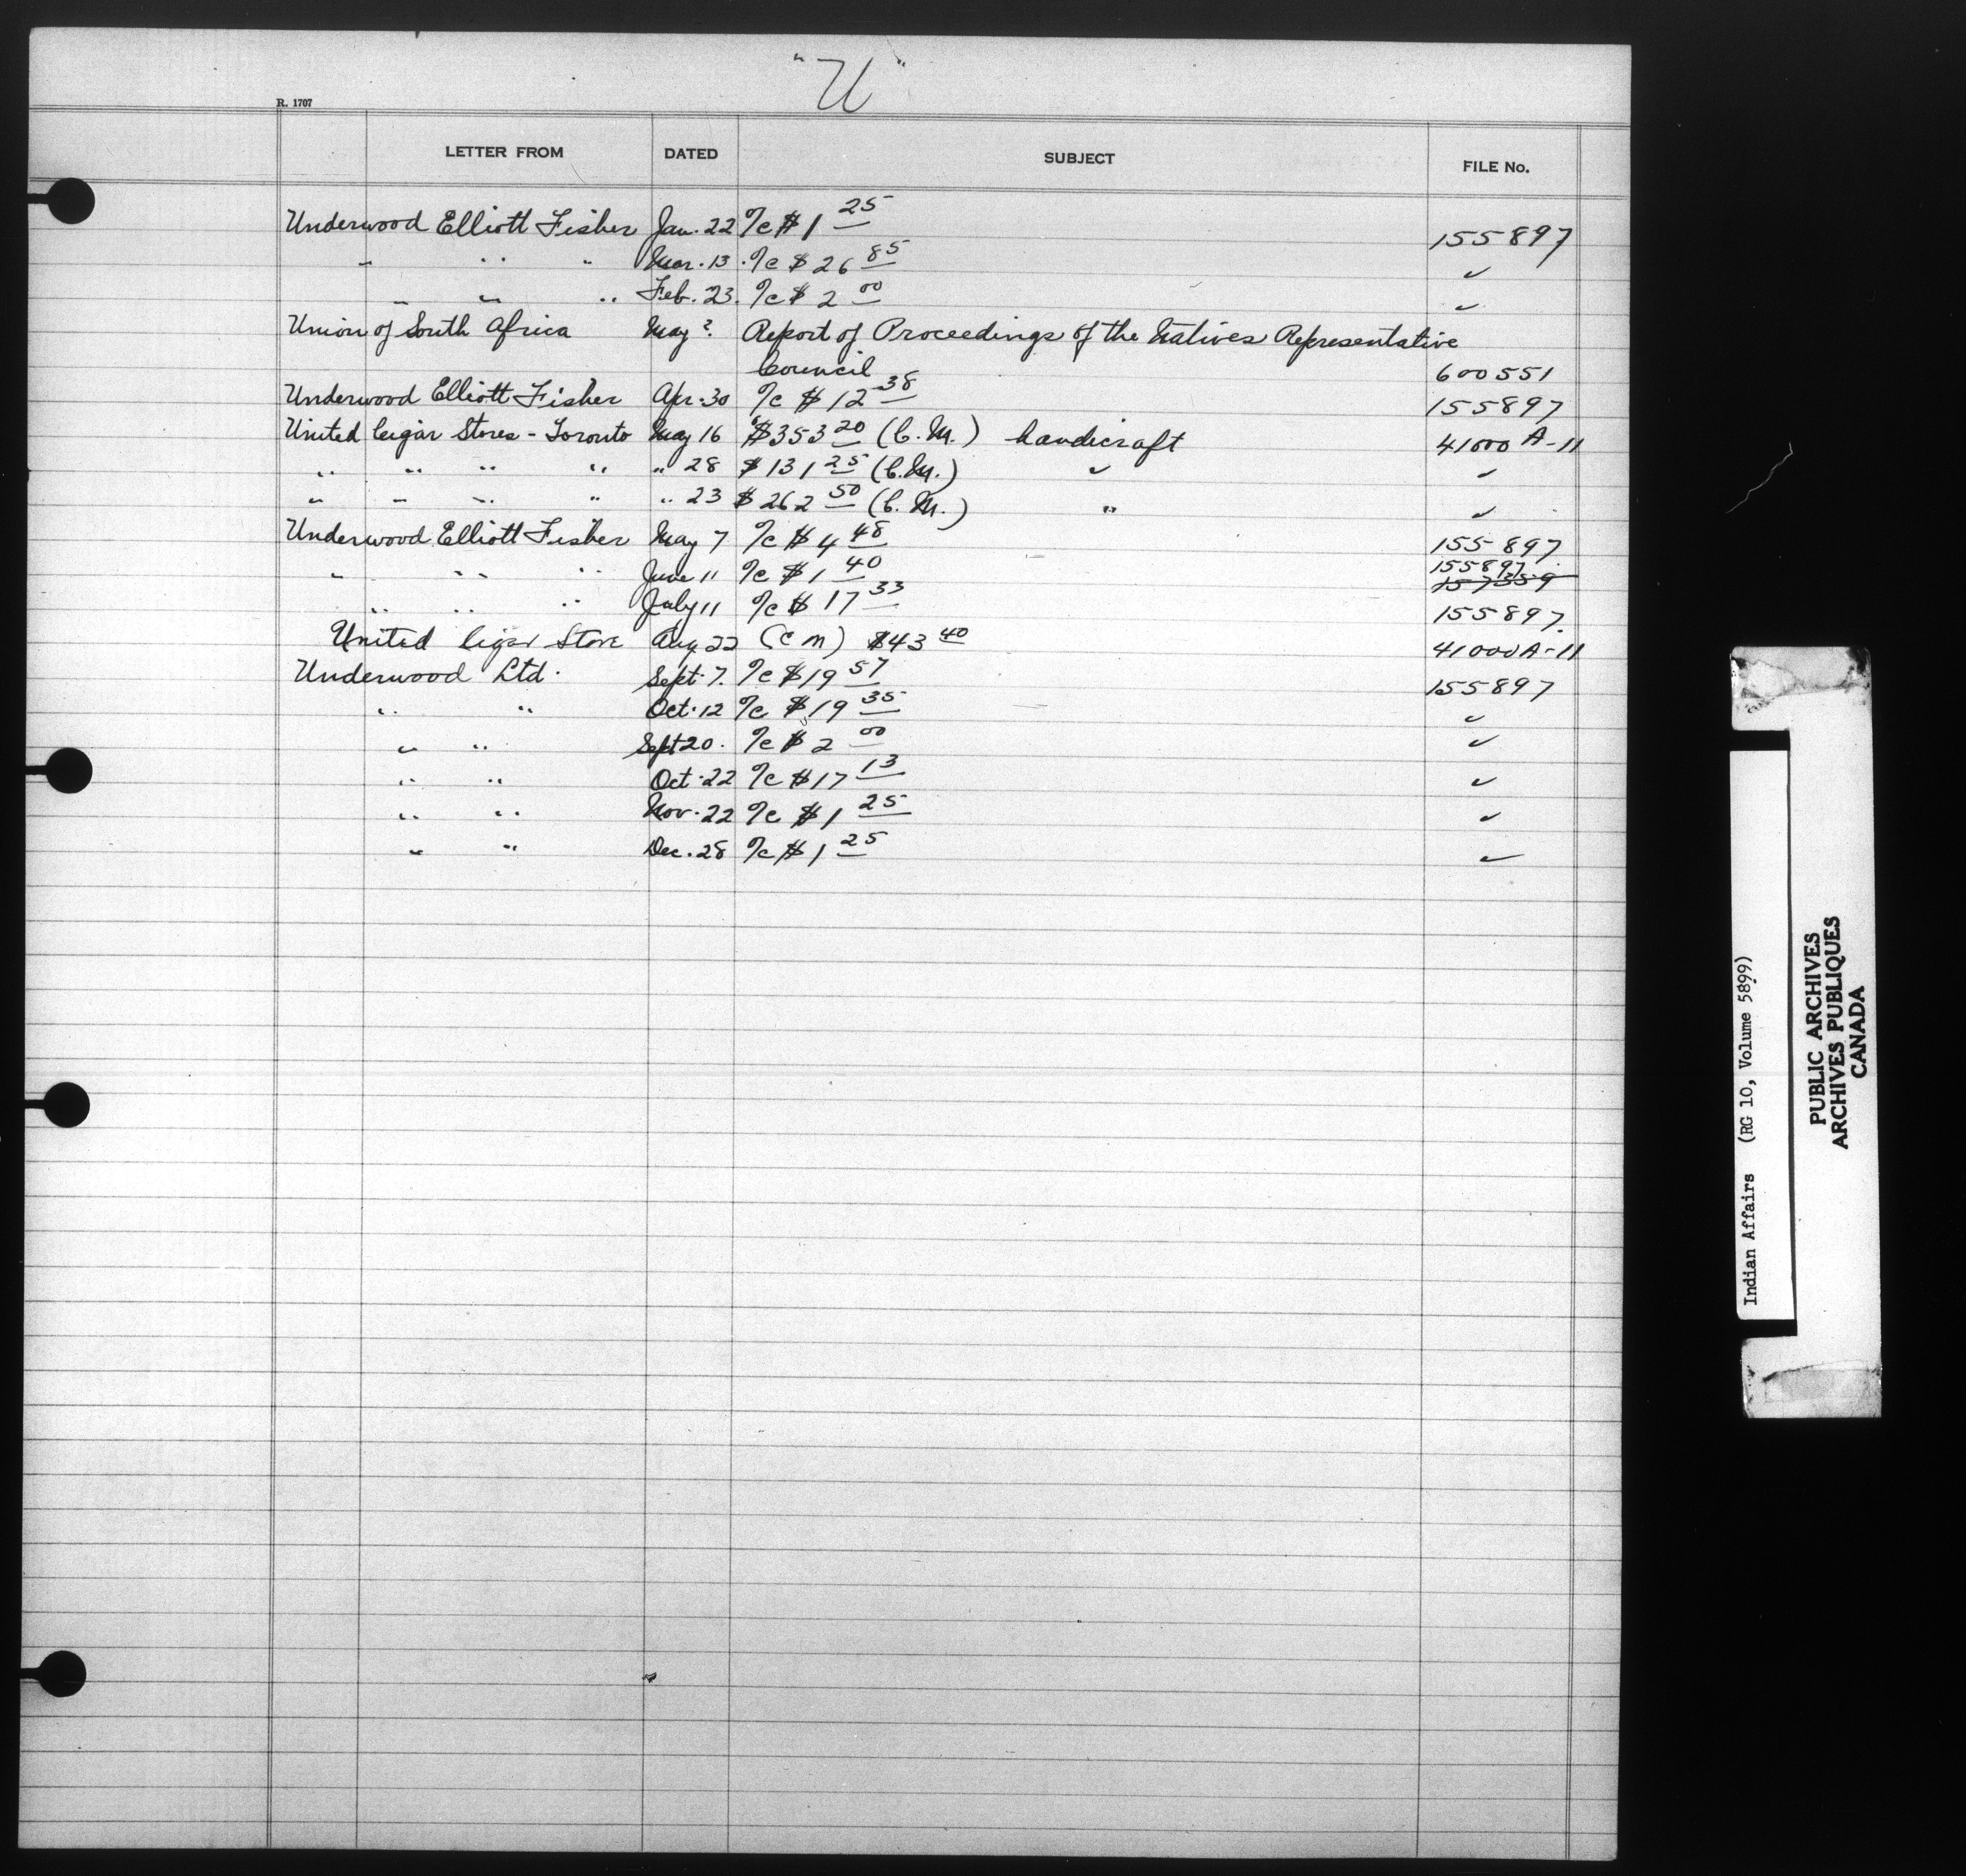 "U"
R. 1707
LETTER FROM DATED SUBJECT FILE No.
Underwood Elliott Fisher Jan. 22 %c $1 25 155897
" " " Mar. 13 %c $26 85 "
" " " Feb. 23. %c $2 00 "
Union of South Africa May ? Report of Proceedings of the Natives Representative
Council 600551
Underwood Elliott Fisher Apr. 30 %c $12 38 155897
United Cigar Stores - Toronto May 16 $353 20 (C.M.) handicraft 41000 A-11
" " " " " 28 $131 25 (C.M.) " "
" " " " " 23 $262 50 (C.M.) " "
Underwood Elliott Fisher May 7 %c $4 48 155897
" " " June 11 %c $1 40 155897 157359
" " " July 11 %c $17 33 155897.
United Cigar Store Aug 22 (C M) $43 40 41000A-11
Underwood Ltd. Sept. 7. %c $19 57 155897
" " Oct. 12 %c $19 35 "
" " Sept 20. %c $2 00 "
" " Oct. 22 %c $17 13 "
" " Nov. 22 %c $1 25 "
" " Dec. 28 %c $1 25 "
Indian Affairs (RG 10, Volume 5899)
PUBLIC ARCHIVES
ARCHIVES PUBLIQUES
CANADA